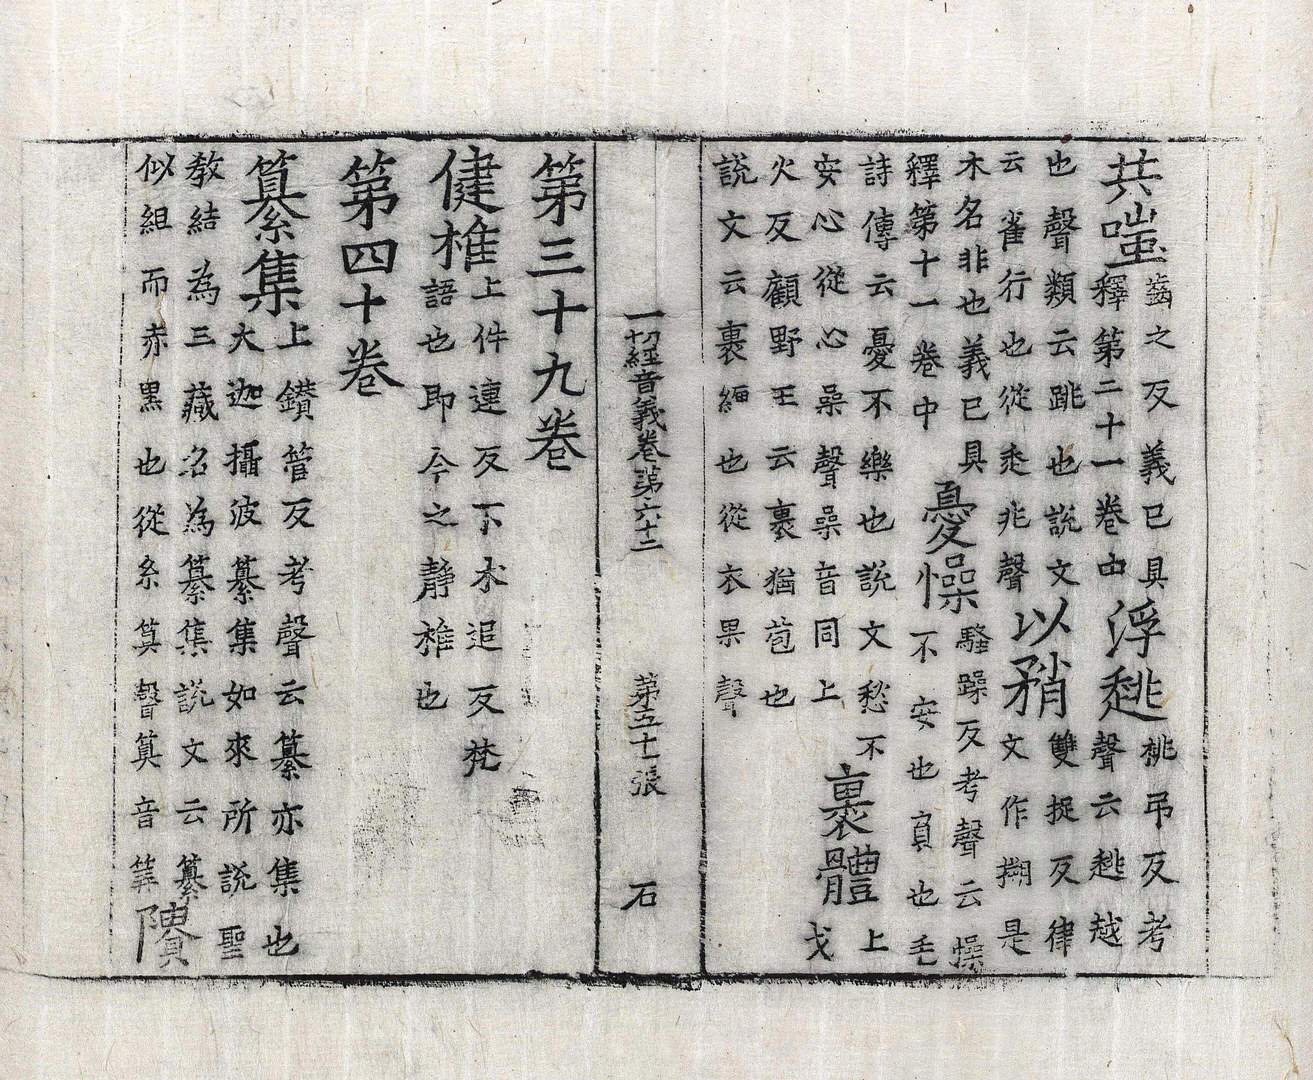 共嗤齒之反義已具
釋第二十一卷中
浮趒桃弔反考
聲云趒越
也聲類云跳也説文
云雀行也從走兆聲
以矟雙捉反律
文作搠是
木名非也義已具
釋第十一卷中
憂懆騷躁反考聲云懆
不安也貪也毛
詩傳云憂不樂也説文愁不
安心從心喿聲喿音同上
裹體上
戈
火反顧野王云裹猶苞也
説文云裹緬也從衣果聲
一切經音義卷第六十二 第五十張 石
第三十九卷
健椎上件連反下木追反梵
語也即今之靜椎也
第四十卷
篹集上鑽管反考聲云纂亦集也
大迦攝波纂集如來所説聖
教結為三藏名為纂集説文云纂
似組而赤黒也從糸算聲算音筭
隫